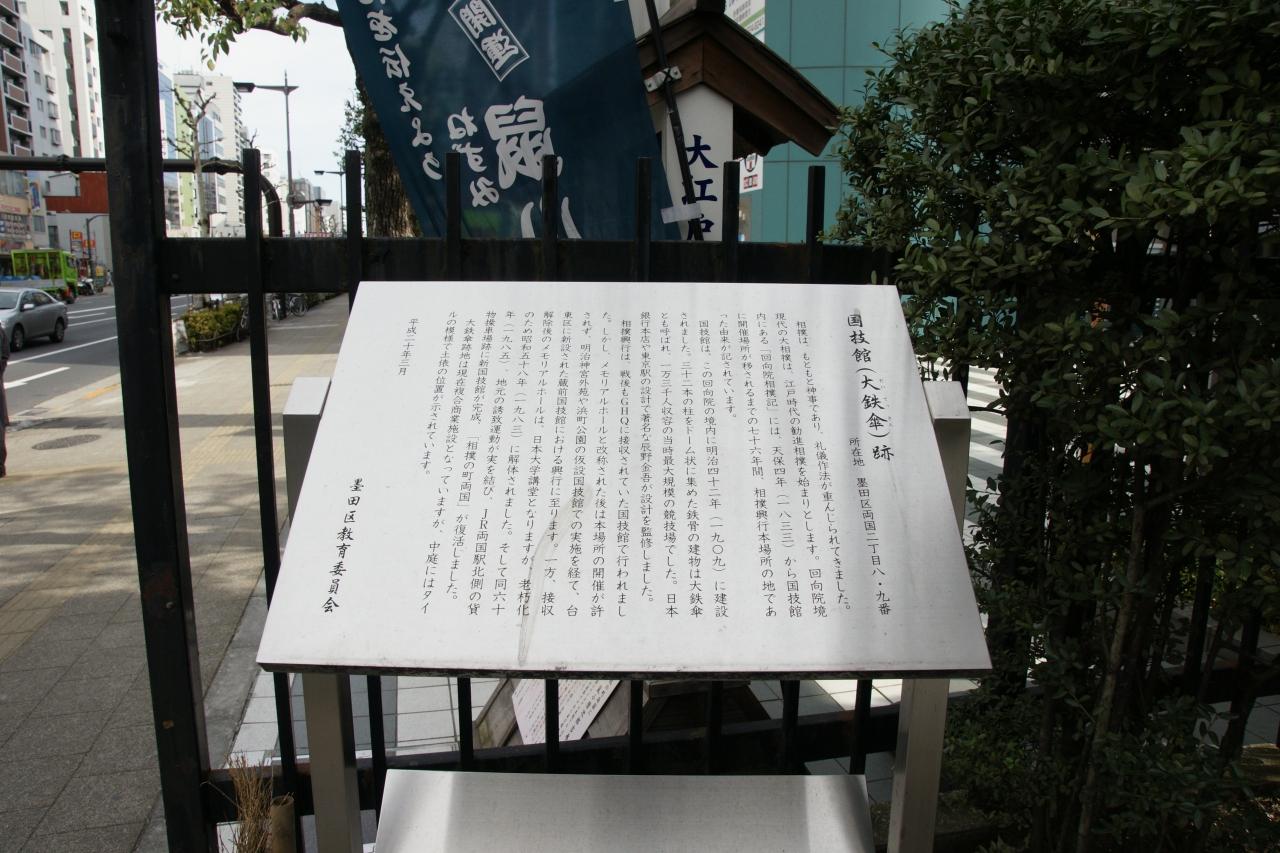 国技館(大鉄傘)跡
所在地 墨田区両国二丁目八・九番
相撲は、もともと神事であり、礼儀作法が重んじられてきました。
現代の大相撲は、江戸時代の勧進相撲を始まりとします。回向院境
内にある「回向院相撲記」には、天保四年(一八三三)から国技館
に開催場所が移されるまでの七十六年間、相撲興行本場所の地であ
った由来が記されています。
国技館は、この回向院の境内に明治四十二年(一九〇九)に建設
されました。三十二本の柱をドーム状に集めた鉄骨の建物は大鉄傘
とも呼ばれ、一万三千人収容の当時最大規模の競技場でした。日本
銀行本店や東京駅の設計で著名な辰野金吾が設計を監修しました。
相撲興行は、戦後もGHQに接収されていた国技館で行われまし
た。しかし、メモリアルホールと改称された後は本場所の開催が許
されず、明治神宮外苑や浜町公園の仮設国技館での実施を経て、台
東区に新設された蔵前国技館における興行に至ります。一方、接収
解除後のメモリアルホールは、日本大学講堂となりますが、老朽化
のため昭和五十八年(一九八三)に解体されました。そして同六十
年(一九八五)、地元の誘致運動が実を結び、JR両国駅北側の貨
物操車場跡に新国技館が完成、「相撲の町両国」が復活しました。
大鉄傘跡地は現在複合商業施設となっていますが、中庭にはタイ
ルの模様で土俵の位置が示されています。
平成二十年三月
墨田区教育委員会
大江戸
開運
ねずみ
を伝えよう